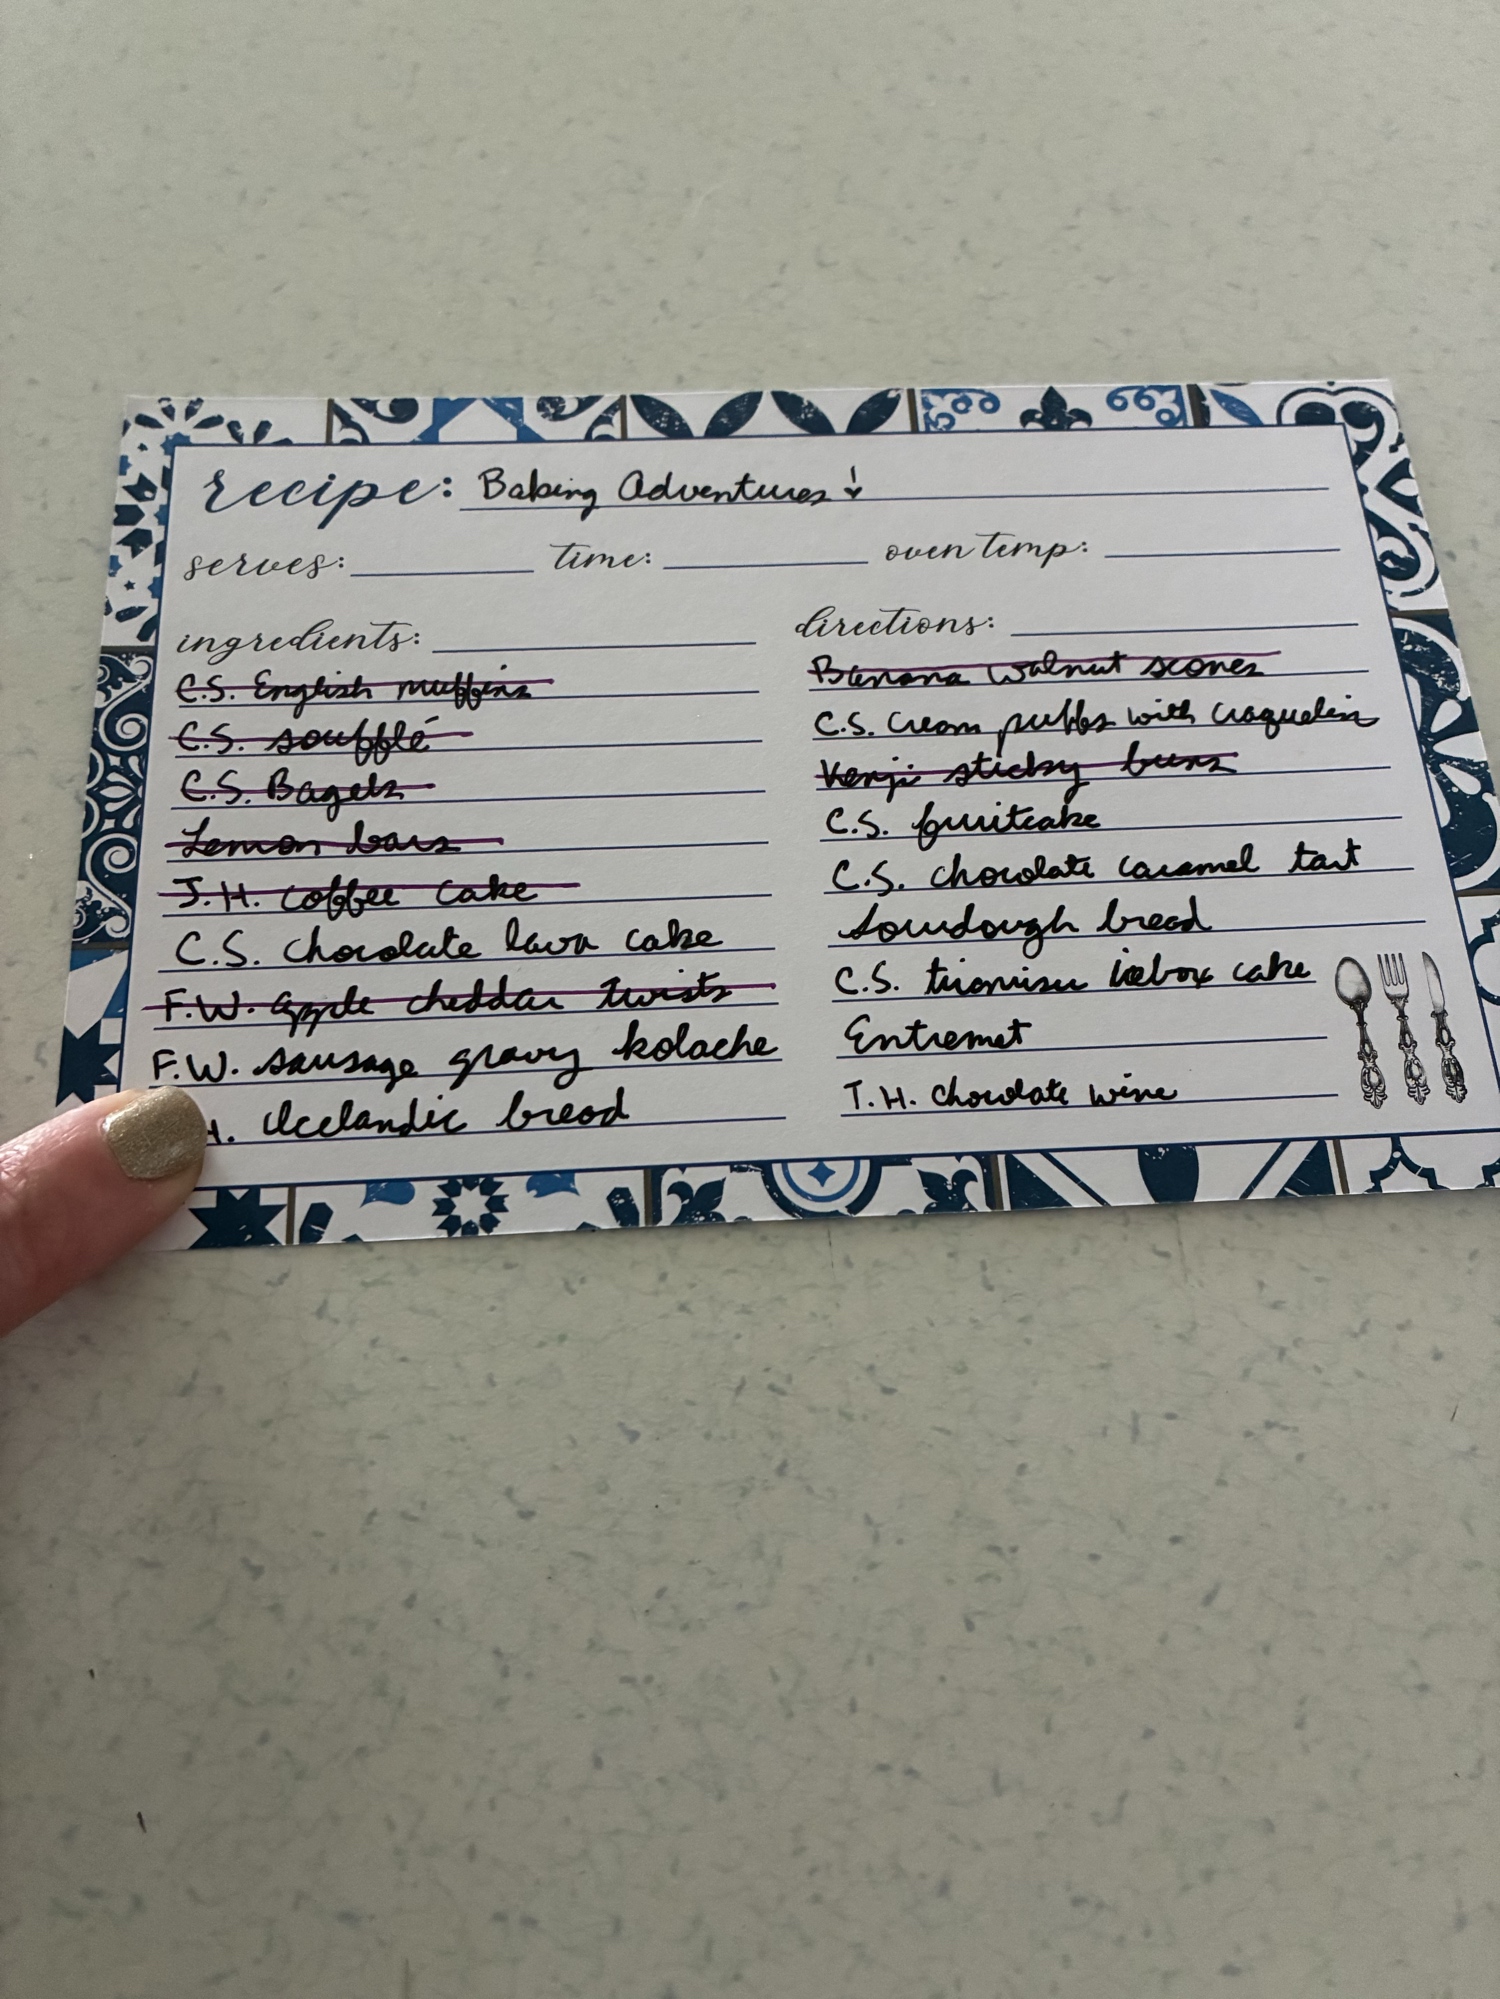 recipe: Baking Adventures!
serves: time: oven temp:
ingredients:
C.S. English muffins
C.S. soufflé
C.S. Bagels
Lemon bars
J.H. coffee cake
C.S. chocolate lava cake
F.W. apple cheddar twists
F.W. sausage gravy kolache
H. Icelandic bread
directions:
Banana walnut scones
C.S. Cream puffs with craquelin
Kenji sticky buns
C.S. fruitcake
C.S. chocolate caramel tart
Sourdough bread
C.S. tiramisu icebox cake
Entremet
T.H. Chocolate wine